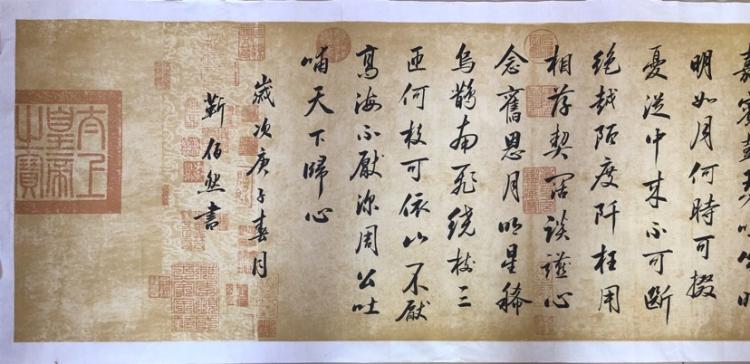 嘉賓鼓瑟吹笙明
明如月何時可掇
憂從中來不可斷
絕越陌度阡枉用
相存契闊談讌心
念舊恩月明星稀
烏鵲南飛繞樹三
匝何枝可依山不厭
高海不厭深周公吐
哺天下歸心
歲次庚子春月
靳佰然書
太上皇帝之寶